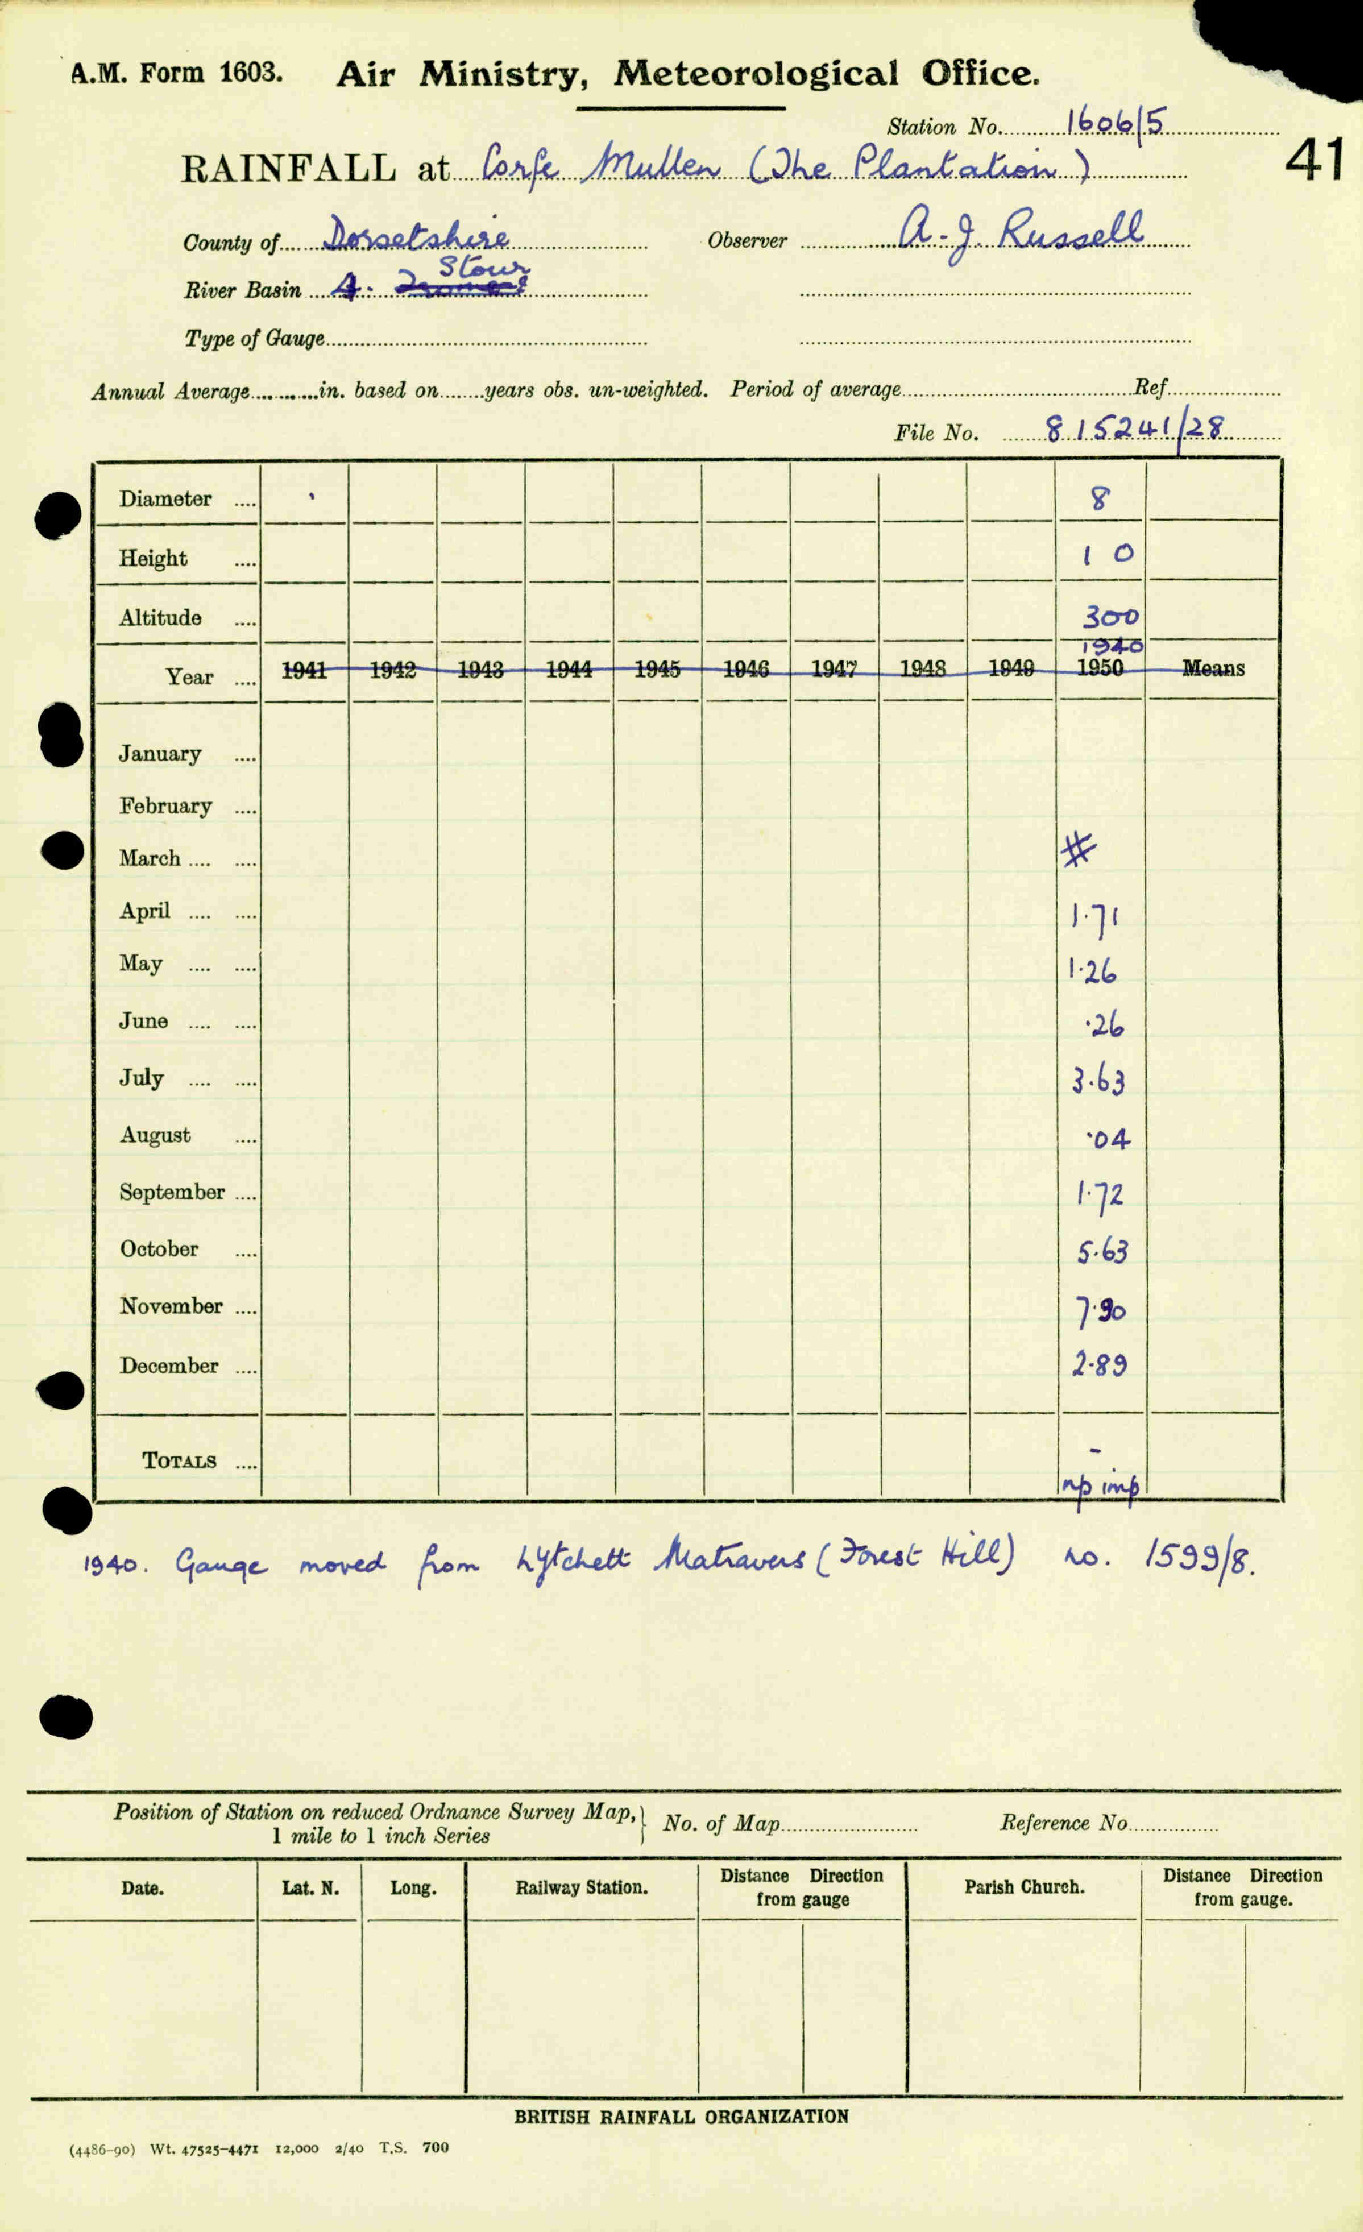 A.M. Form 1603. Air Ministry, Meteorological Office.
Station No. 1606/5
RAINFALL at Corfe Mullen (The Plantation) 41
County of Dorsetshire Observer A. J. Russell
Stour
River Basin 4. Frome
Type of Gauge
Annual Average in. based on years obs. un-weighted. Period of average Ref.
File No. 815241/28
Diameter 8
Height 1 0
Altitude 300
1940
Year 1941 1942 1943 1944 1945 1946 1947 1948 1949 1950 Means
January
February
March #
April 1.71
May 1.26
June .26
July 3.63
August .04
September 1.72
October 5.63
November 7.90
December 2.89
TOTALS -
np imp
1940. Gauge moved from Lytchett Matravers (Forest Hill) no. 1599/8.
Position of Station on reduced Ordnance Survey Map, No. of Map Reference No.
1 mile to 1 inch Series
Date. Lat. N. Long. Railway Station. Distance Direction from gauge Parish Church. Distance Direction from gauge.
BRITISH RAINFALL ORGANIZATION
(4486-90) Wt. 47525-4471 12,000 2/40 T.S. 700